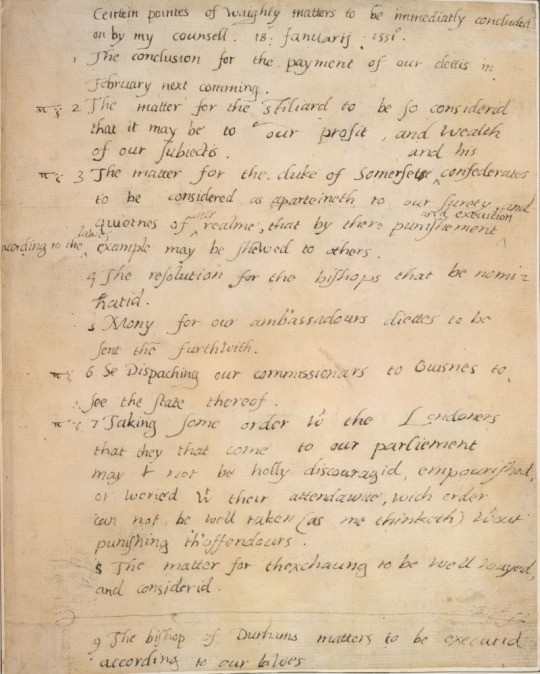 Certein pointes of waighty matters to be immediatly concluded
on by my counsell. 18. Januarij. 1551.
1 The conclusion for the payment of our dettis in
february next comming.
2 The matter for the stiliard to be so considerid
that it may be to our profit, and wealth
of our subiectis.
and his
3 The matter for the duke of Somersets confederates
to be considered as aparteineth to our surety and
quietnes of our realme, that by there punishement and execution
according to the lawes example may be shewed to others.
4 The resolution for the bishops that be nomi=
natid.
5 Mony for our ambassadours diettes to be
sent them furthwith.
6 Dispaching our commissionars to Guisnes to
see the state thereof.
7 Taking some order with the Londoners
that they that come to our parliement
may not be holly discouragid, empourished,
or weried with their attendawnce, wich order
can not be well taken (as me thinketh) without
punishing th'offendours.
8 The matter for thexchaung to be well wayed,
and considerid.
9 The bishop of Durhams matters to be executid
according to our lawes